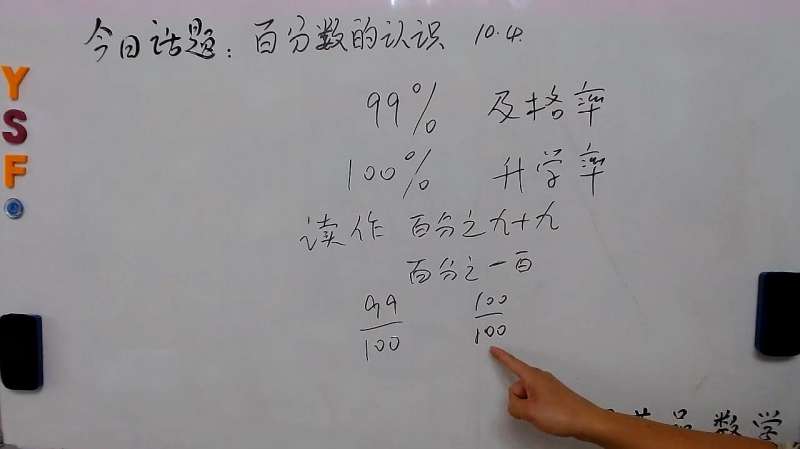 今日话题：百分数的认识 10.4.
99% 及格率
100% 升学率
读作 百分之九十九
百分之一百
99/100 100/100
YSF
品数学